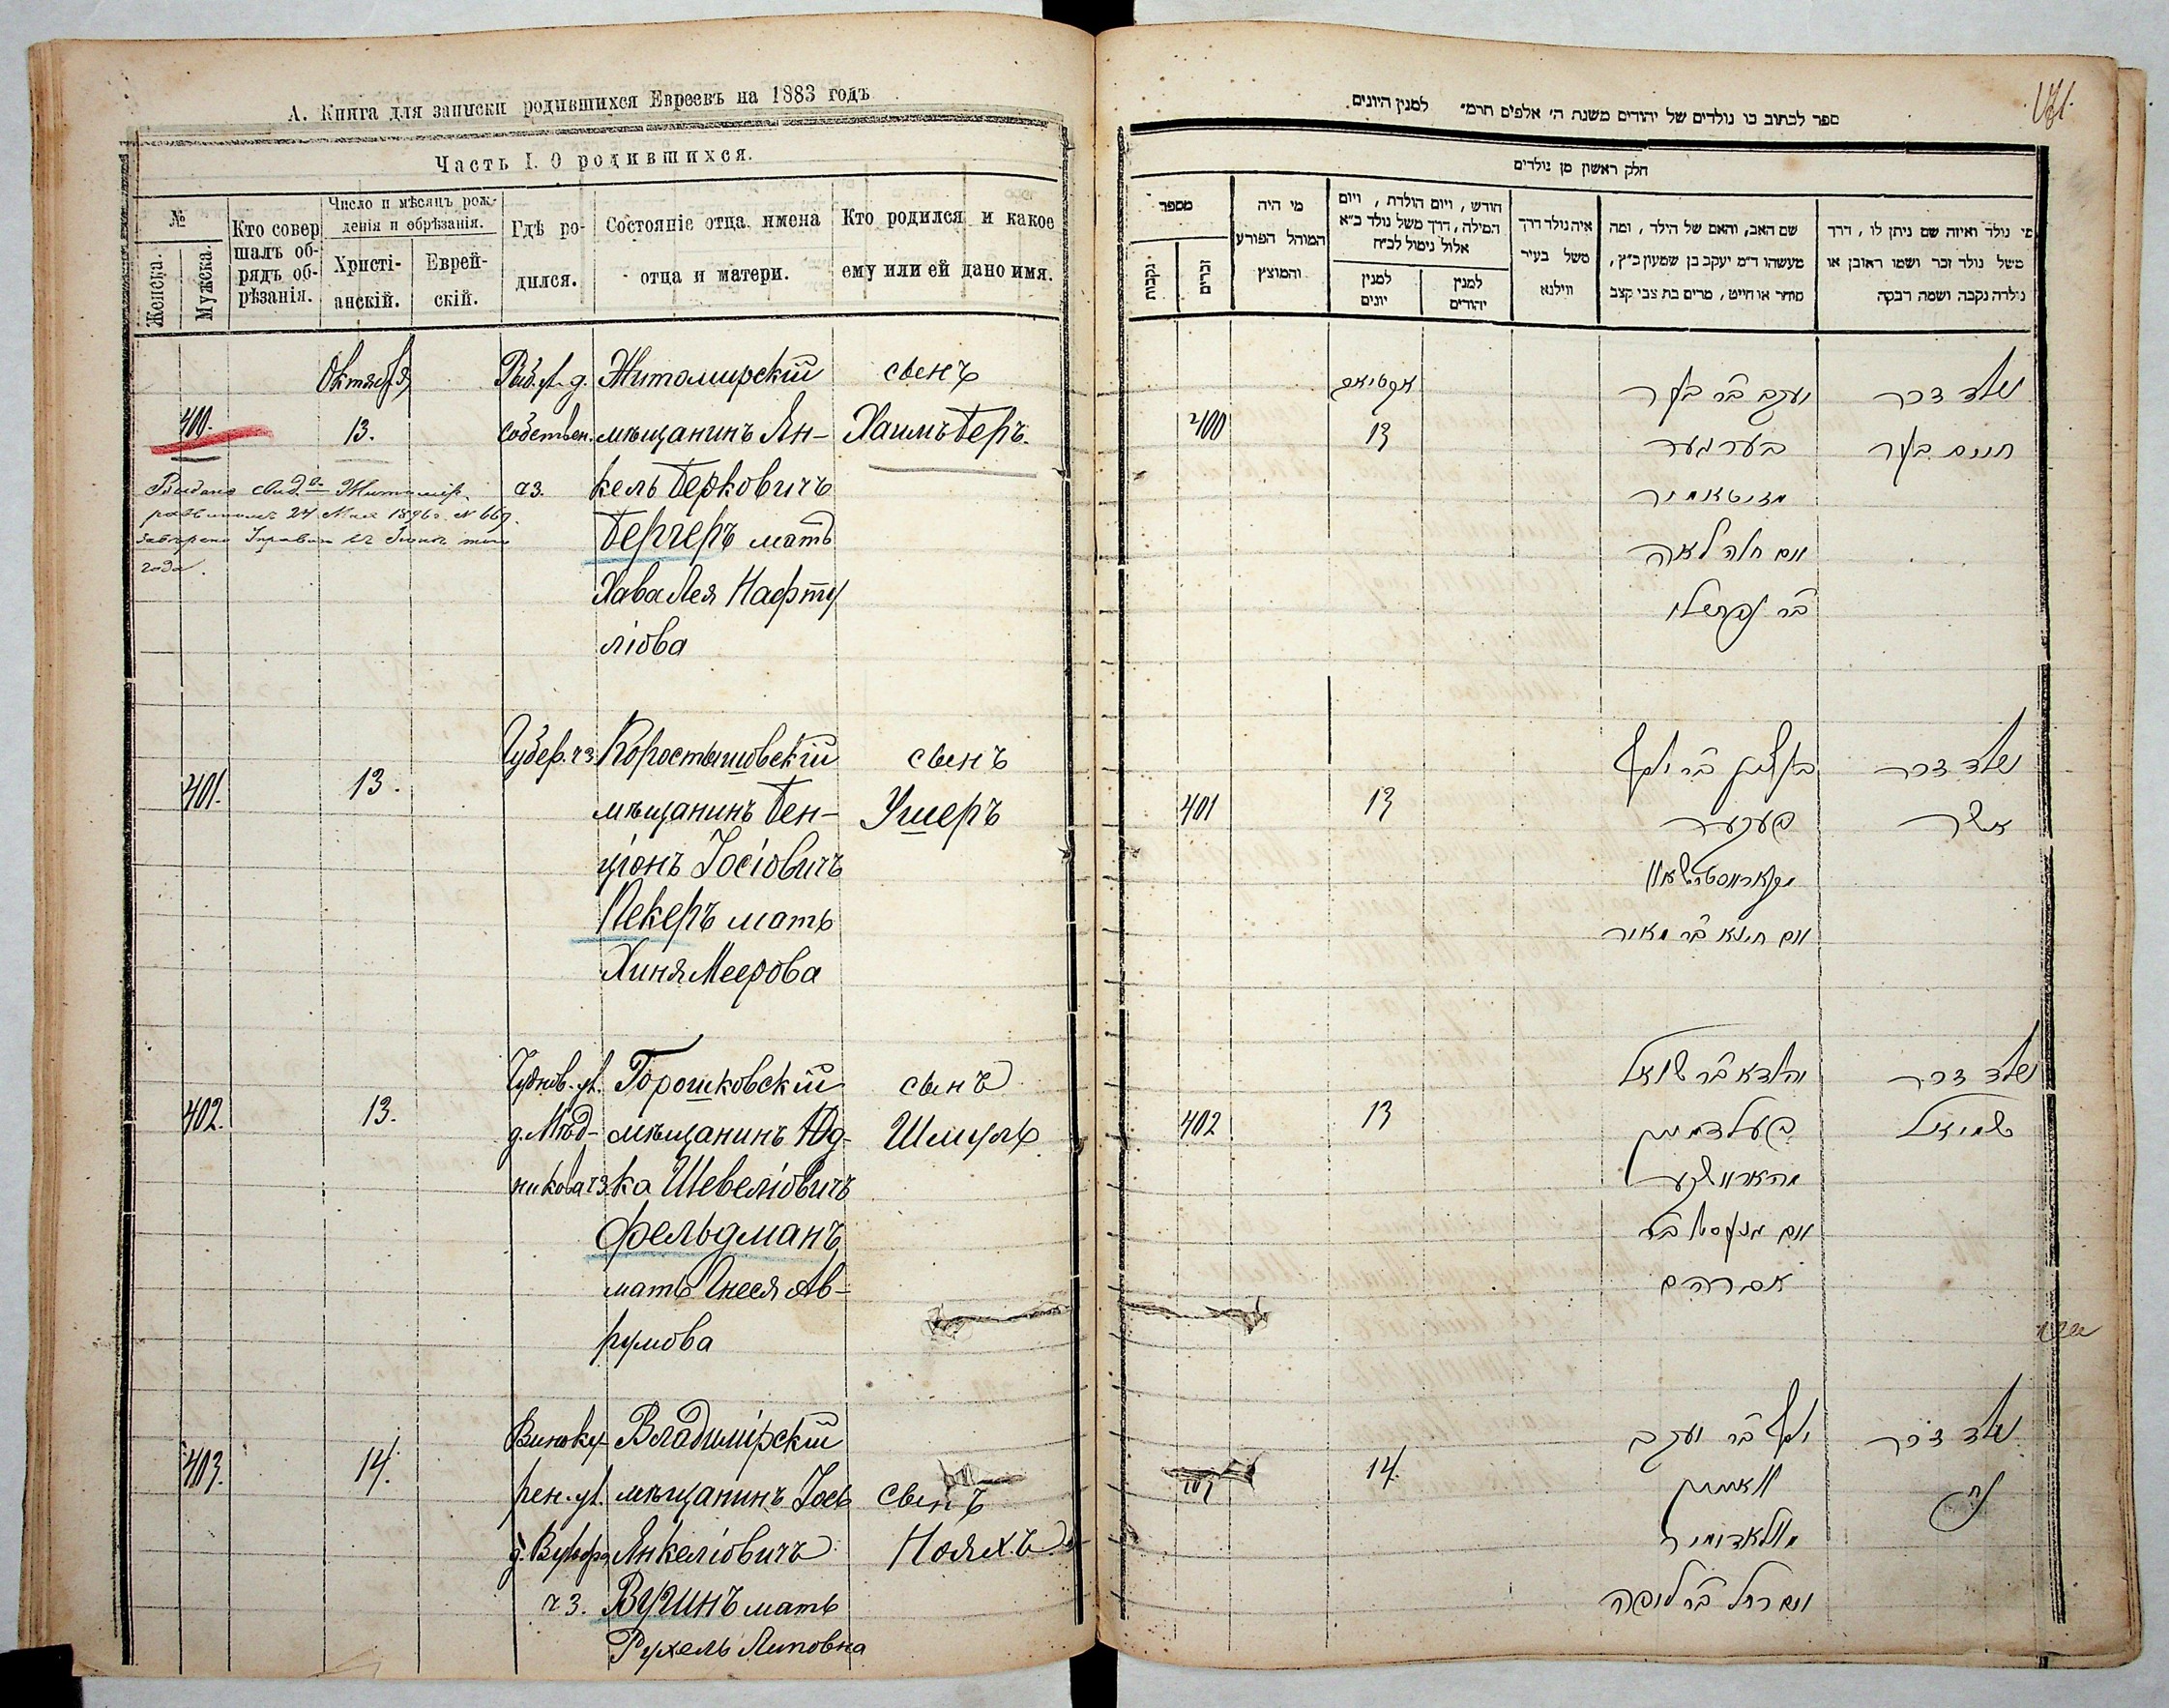 А. Книга для записки родившихся Евреевъ на 1883 годъ
Часть I. О родившихся.
№
Женска.
Мужска.
Кто совер
шалъ об-
рядъ об-
рѣзанія.
Число и мѣсяцъ рож-
денія и обрѣзанія.
Христі-
анскій.
Еврей-
скій.
Гдѣ ро-
дился.
Состояніе отца имена
отца и матери.
Кто родился и какое
ему или ей дано имя.
Октября
400.
13.
Рыб. ул. д.
собствен.
ч3.
Житомирскій
мѣщанинъ Ян-
кель Берковичъ
Бергеръ мать
Хава Лея Нафту
ліова
сынъ
Хаимъ Беръ.
24 Мая 1896 г. № 669.
года.
401.
13.
Губер. ч3
Коростышовскій
мѣщанинъ Бен-
ціонъ Іосіовичъ
Пекеръ мать
Хиня Меерова
сынъ
Ушеръ
402.
13.
Чуднов. ул.
д. Мѣд-
никова ч3.
Горошковскій
мѣщанинъ Юд-
ка Шевеліовичъ
Фельдманъ
мать Инеся Ав-
румова
сынъ
Шмуль
403.
14.
Виноку-
рен. ул.
ч3.
Владимірскій
мѣщанинъ Іось
Янкеліовичъ
Вугинъ мать
Рухель Липовна
сынъ
Нояхъ
ספר לכתוב בו נולדים של יהודים משנת ה׳ אלפים תרמ״ למנין היונים
חלק ראשון מן נולדים
מספר
נקבות
זכרים
מי היה
המוהל הפורע
והמוצץ
חודש, ויום הולדת, ויום
המילה, דרך משל נולד כ״א
אלול נימול לכ״ח
למנין
יונים
למנין
יהודים
איה נולד דרך
משל בעיר
ווילנא
שם האב, והאם של הילד, ומה
מעשהו ד״מ יעקב בן שמעון כ״ץ,
סוחר או חייט, מרים בת צבי קצב
מי נולד ואיזה שם ניתן לו, דרך
משל נולד זכר ושמו ראובן או
נולדה נקבה ושמה רבקה
400
13
יעקב בר בער
בערגער
מזיטאמיר
ואם חוה לאה
בר נפתלי
נולד זכר
חיים בער
401
13
בן ציון בר יוסף
פעקער
ואם חינא בר מאיר
נולד זכר
אשר
402
13
פעלדמאן
אברהם
נולד זכר
שמואל
14.
יוסף בר יעקב
וואגין
מוולאדימיר
ואם רחל בר ליפא
נולד זכר
נח